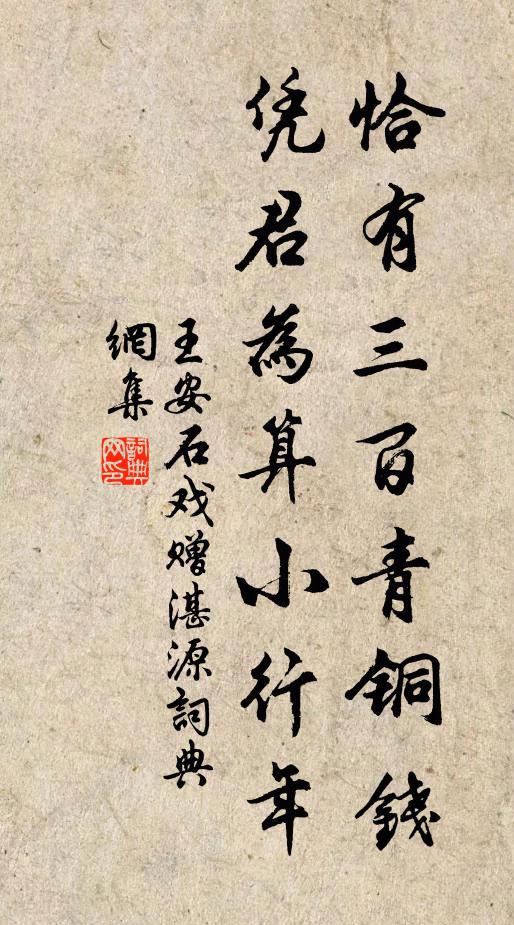 恰有三百青铜錢
凭君為算小行年
王安石戏赠湛源詞典
網集
詞典网印